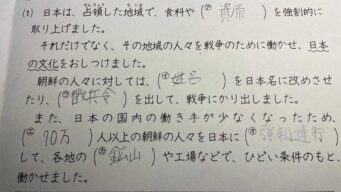 (1) 日本は、占領した地域で、食料や(㋐ 資原 )を強制的に
取り上げました。
それだけでなく、その地域の人々を戦争のために働かせ、日本
の文化をおしつけました。
朝鮮の人々に対しては、(㋑ 姓名 )を日本名に改めさせ
たり、(㋒ 徴兵令 )を出して、戦争にかり出しました。
また、日本の国内の働き手が少なくなったため、
(㋓ 70万 )人以上の朝鮮の人々を日本に(㋔ 強制連行 )
して、各地の(㋕ 鉱山 )や工場などで、ひどい条件のもと、
働かせました。